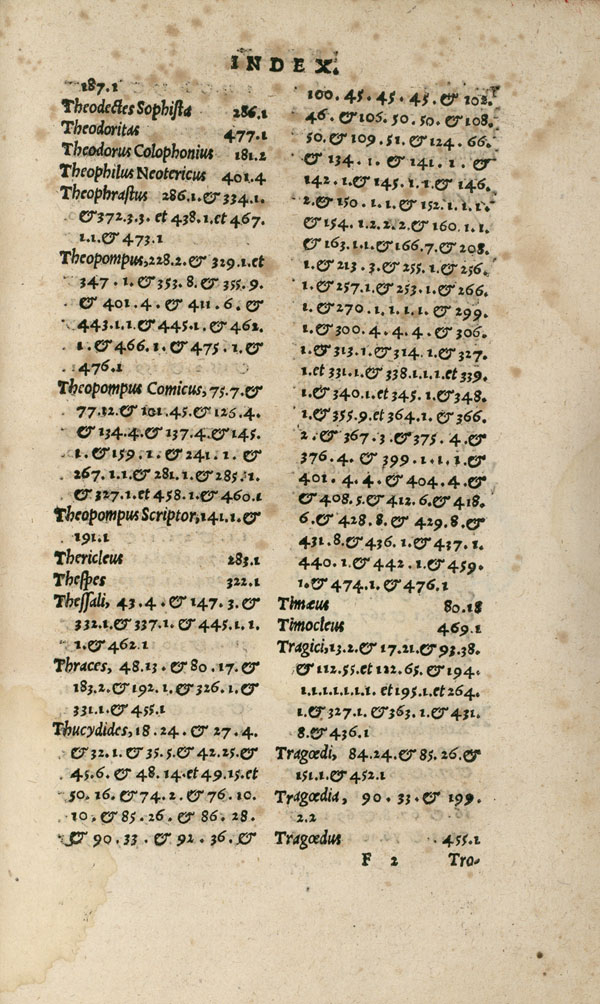 INDEX.
187.1
Theodectes Sophiſta 286.1
Theodoritas 477.1
Theodorus Colophonius 181.2
Theophilus Neotericus 401.4
Theophraſtus 286.1.& 334.1.
&372.3.3. et 438.1.et 467.
1.1.& 473.1
Theopompus,228.2.& 329.1.et
347.1.& 353.8.& 355.9.
& 401.4.& 411.6.&
443.1.1.& 445.1.& 462.
1.& 466.1.& 475.1.&
476.1
Theopompus Comicus, 75.7.&
77.12.& 101.45.& 126.4.
& 134.4.& 137.4.& 145.
1.& 159.1.& 241.1.&
267.1.1.& 281.1.& 285.1.
& 327.1.et 458.1.& 460.1
Theopompus Scriptor,141.1.&
191.1
Thericleus 283.1
Theſpes 322.1
Theſſali, 43.4.& 147.3.&
332.1.& 337.1.& 445.1.1.
1.& 462.1
Thraces, 48.13.& 80.17.&
183.2.& 192.1.& 326.1.&
331.1.& 455.1
Thucydides,18.24.& 27.4.
& 32.1.& 35.5.& 42.25.&
45.6.& 48.14.et 49.15.et
50.16.& 74.2.& 76.10.
10.& 85.26.& 86.28.
& 90.33.& 92.36.&
100.45.45.45.& 102.
46.& 106.50.50.& 108.
50.& 109.51.& 124.66.
& 134.1.& 141.1.&
142.1.& 145.1.1.& 146.
2.& 150.1.1.& 152.1.1.1.
& 154.1.2.2.2.& 160.1.1.
& 163.1.1.& 166.7.& 208.
1.& 213.3.& 255.1.& 256.
1.& 257.1.& 253.1.& 266.
1.& 270.1.1.1.1.& 299.
1.& 300.4.4.4.& 306.
1.& 313.1.& 314.1.& 327.
1.et 331.1.& 338.1.1.1.et 339.
1.& 340.1.et 345.1.& 348.
1.& 355.9.et 364.1.& 366.
2.& 367.3.& 375.4.&
376.4.& 399.1.1.1.&
401.4.4.& 404.4.&
& 408.5.& 412.6.& 418.
6.& 428.8.& 429.8.&
431.8.& 436.1.& 437.1.
440.1.& 442.1.& 459.
1.& 474.1.& 476.1
Timæus 80.18
Timocleus 469.1
Tragici,13.2.& 17.21.& 93.38.
& 112.55.et 122.65.& 194.
1.1.1.1.1.1.1. et 195.1.et 264.
1.& 327.1.& 363.1.& 431.
8.& 436.1
Tragœdi, 84.24.& 85.26.&
151.1.& 452.1
Tragœdia, 90.33.& 199.
2.2
Tragœdus 455.1
F 2 Tro-